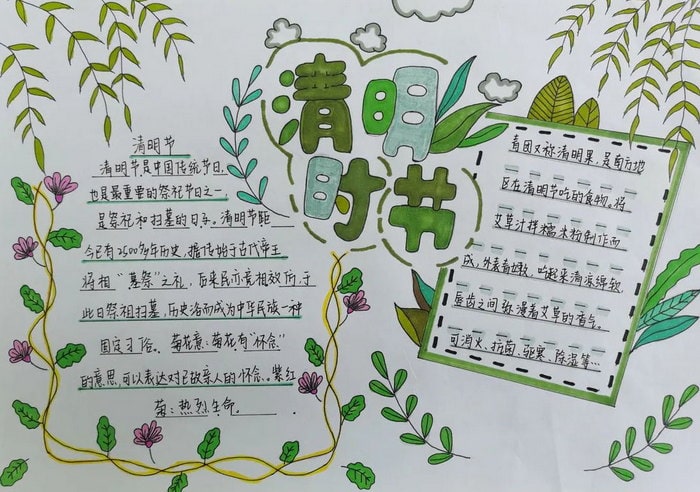 清明
时节
清明节
清明节是中国传统节日,
也是最重要的祭祀节日之一,
是祭祀和扫墓的日子。清明节距
今已有2500多年历史,据传始于古代帝王
将相“墓祭”之礼,后来民亦竞相效仿,于
此日祭祖扫墓,历史沿而成为中华民族一种
固定习俗。菊花意:菊花有“怀念”
的意思,可以表达对已故亲人的怀念。紫红
菊:热烈生命。
青团又称清明果,是南方地
区在清明节吃的食物。将
艾草汁拌糯米粉制作而
成,外表看幼嫩,吃起来清凉绵软,
唇齿之间弥漫着艾草的香气。
可消火、抗菌、驱寒、除湿等…